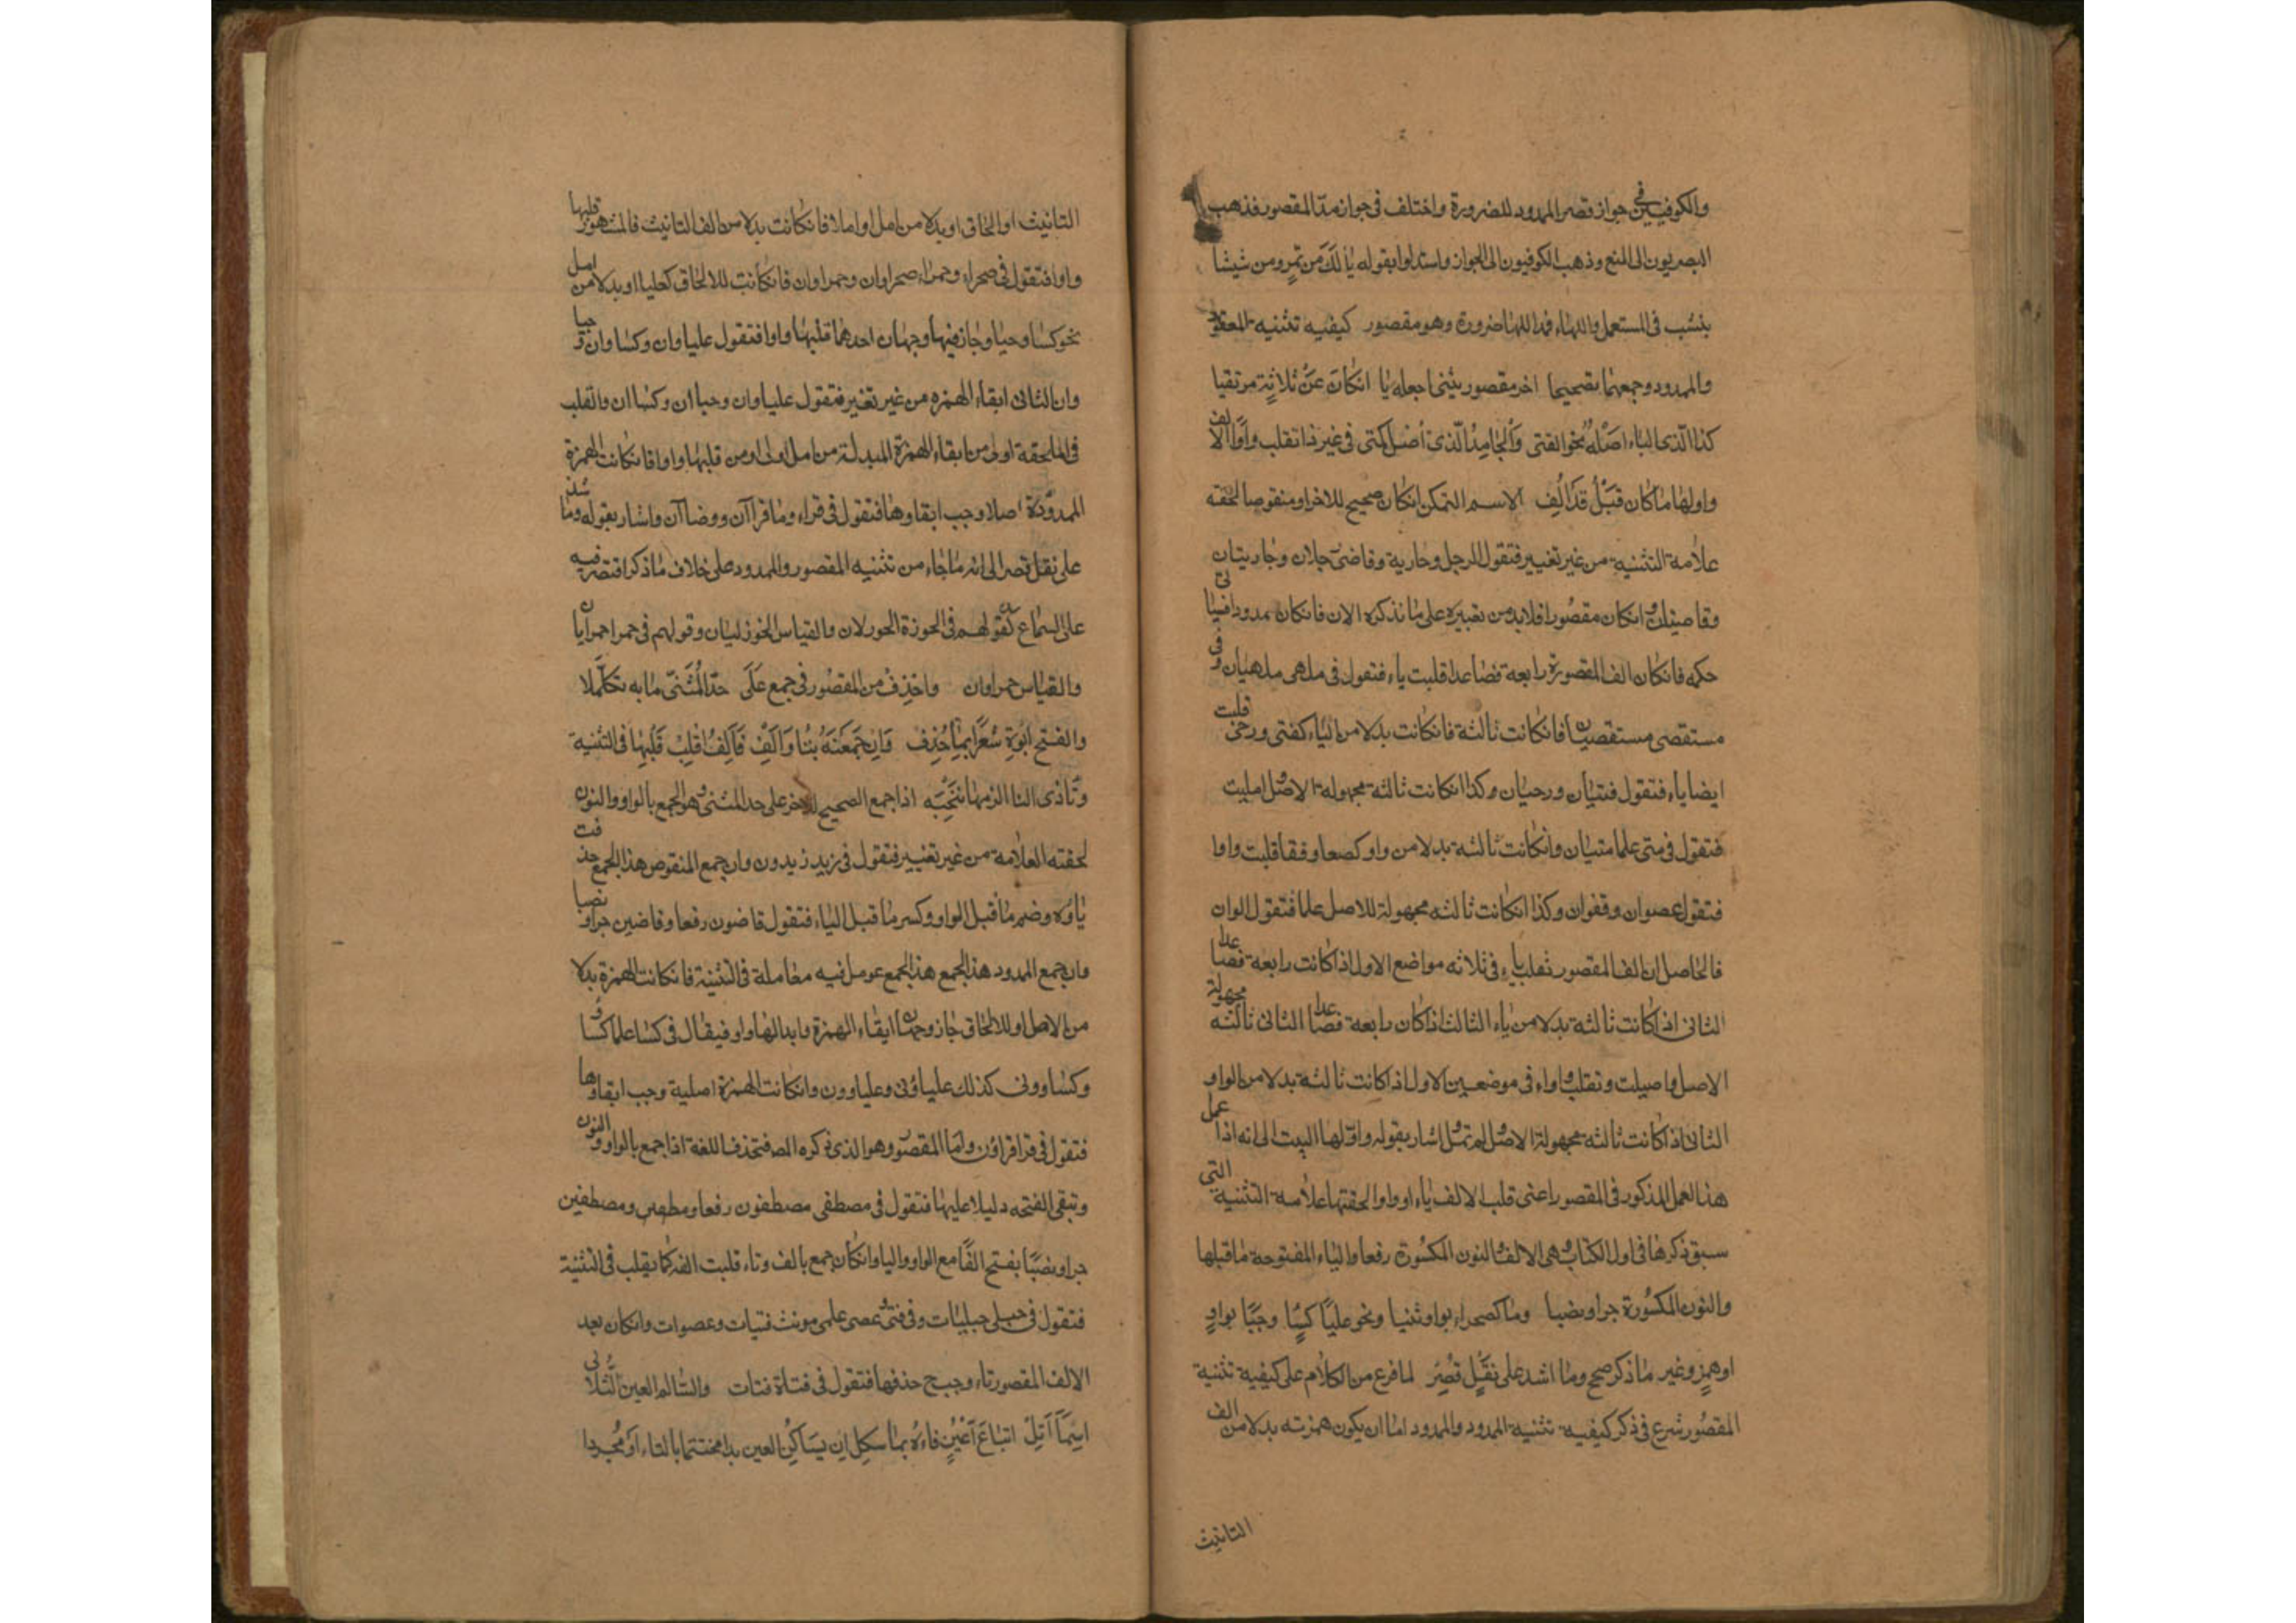 والكوفيين في جواز قصر الممدود للضرورة واختلف في جواز مد المقصور فذهب
البصريون الى المنع وذهب الكوفيون الى الجواز واستدلوا بقوله يا لك من تمر ومن شيشا
ينشب في المستعل واللهاء فمد اللها ضرورة وهو مقصور كيفيه تثنيه المقصور
والممدود وجمعهما تصحيحا اخر مقصور يثنى اجعله يا ان كان عن ثلاثة مرتقيا
كذا الذى الياء اصله نحو الفتى والجامد الذى اميل كمتى في غير ذا تقلب واوا الالف
واولها ما كان قبل قد الف الاسم المتمكن انكان صحيح للاخر او منقوصا لحقه
علامة التثنية من غير تغيير فتقول الرجل وجارية وقاضى رجلان وجاريتان
وقاضيان وانكان مقصورا فلابد من تغييره على ما نذكره الان فانكان ممدودا فسياتى
حكمه فانكان الف المقصورة رابعة فصاعدا قلبت ياء فتقول في ملهى ملهيان وفى
مستقصى مستقصيان فانكانت ثالثة فانكانت بدلا من الياء كفتى ورحى قلبت
ايضا ياء فتقول فتيان ورحيان وكذا انكانت ثالثة مجهولة الاصل اميلت
فتقول في متى علما متيان وانكانت ثالثة بدلا من واو كعصا وقفا قلبت واوا
فتقول عصوان وقفوان وكذا انكانت ثالثه مجهولة للاصل علما فتقول الوان
فالحاصل ان الف المقصور تقلب ياء في ثلاثه مواضع الاول اذا كانت رابعة فصاعدا
الثانى اذا كانت ثالثة بدلا من ياء الثالث اذا كان رابعة فصاعدا الثانى ثالثه مجهولة
الاصل واميلت وتقلب واوا في موضعين الاول اذا كانت ثالثة بدلا من الواو
الثانى اذا كانت ثالثة مجهولة الاصل ولم تمل اشار بقوله واولها البيت الى انه اذا عمل
هذا العمل المذكور في المقصور اعنى قلب الالف ياء او واوا لحقتها علامة التثنية التى
سبق ذكرها في اول الكتاب وهى الالف والنون المكسورة رفعا والياء المفتوحة ما قبلها
والنون المكسورة جرا ونصبا وما كصحراء بواو ثنيا ونحو علياء كساء وحيا بواو
او همز وغير ما ذكر صحح وما اشذ على نقل قصر لما فرع من الكلام على كيفية تثنية
المقصور شرع في ذكر كيفيه تثنية الممدود والممدود اما ان يكون همزته بدلا من الف
التانيث
التانيث او الحاق او بدلا من اصل او اصلا فانكانت بدلا من الف التانيث فالمشهور قلبها
واوا فتقول في صحراء وحمراء صحراوان وحمراوان فانكانت للالحاق كعلبا او بدلا من اصل
نحو كسا وحيا وجاز فيها وجهان احدهما قلبها واوا فتقول علباوان وكساوان وحيا
وان الثانى ابقاء الهمزه من غير تغير فتقول علباوان وحياان وكساان والقلب
في الملحقة اولى من ابقاء الهمزة المبدلة من اصل اولى او من قلبها واوا فانكانت الهمزة
الممدودة اصلا وجب ابقاوها فتقول في قراء وضا قراآن ووضاآن واشار بقوله وما شذ
على نقل قصر الى انه ما جاء من تثنيه المقصور والممدود على خلاف ما ذكر اقتصر فيه
على السماع كقولهم في الخوزلى الخوزلان والقياس الخوزليان وقولهم في حمرا حمرايان
والقياس حمراوان واحذف من المقصور في جمع على حد المثنى ما به تكملا
والفتح ابق مشعرا بما حذف وان جمعته بتا والف فالف اقلب قلبها في التثنية
وتا ذى التا الزمها تنحيه اذا جمع الصحيح الاخر على حد المثنى وهو الجمع بالواو والنون
لحقته العلامة من غير تغيير فتقول في زيد زيدون وان جمع المنقوص هذا الجمع حذفت
ياؤه وضم ما قبل الواو وكسر ما قبل الياء فتقول قاضون رفعا وقاضين جرا ونصبا
وان جمع الممدود هذا الجمع هذا الجمع عومل فيه معاملة في التثنية فانكانت الهمزة بدلا
من الاصل او للالحاق جاز وجهان ابقاء الهمزة وابدالها واو فيقال في كسا علما كساؤ
وكساوون كذلك علباؤن وعلباوون وانكانت الهمزة اصلية وجب ابقاوها
فتقول في قرا قراؤن واما المقصور وهو الذى ذكره المص فتحذف اللغة اذا جمع بالواو والنون
وتبقى الفتحه دليلا عليها فتقول في مصطفى مصطفون رفعا ومصطفين
جرا ونصبا بفتح الفا مع الواو واليا وانكان جمع بالف وتاء قلبت الفه كما يقلب في التثنية
فتقول في حبلى حبليات وفى فتى وعصى علمى مونث فتيات وعصوات وانكان بعد
الالف المقصور تاء وجب ح حذفها فتقول في فتاة فتات والسالم العين الثلاثى
اسما انل اتباع عين فاءه بما شكل ان ساكن العين بدا مختتما بالتاء او مجردا